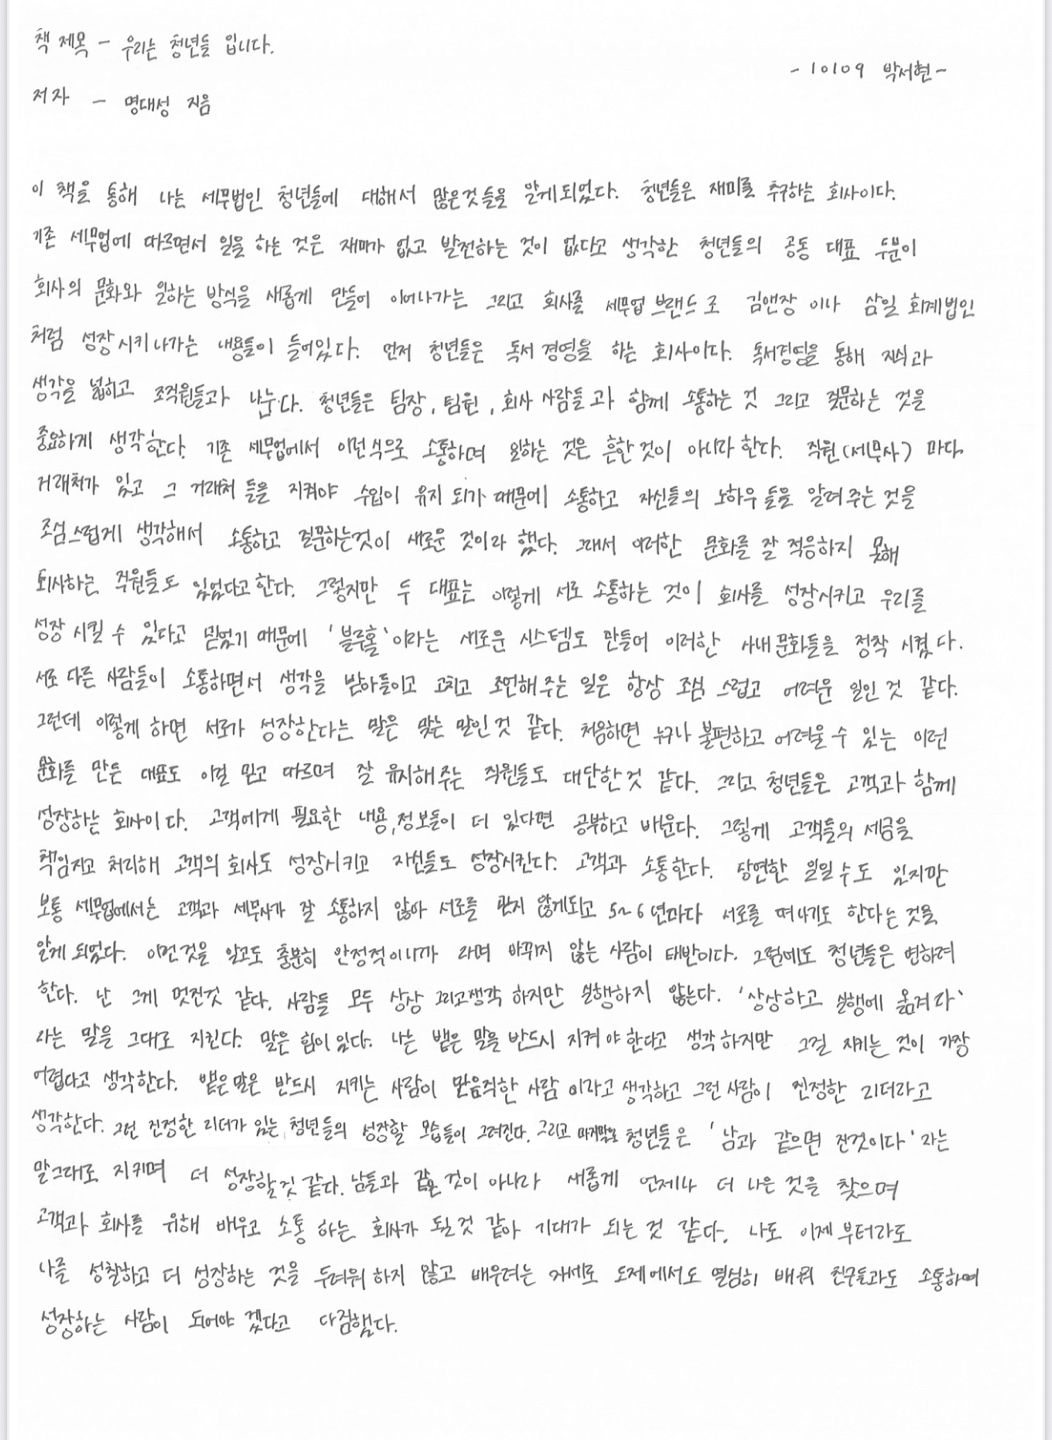 책 제목 - 우리는 청년들 입니다.
- 10109 박서현 -
저자 - 명대성 지음
이 책을 통해 나는 세무법인 청년들에 대해서 많은것들을 알게되었다. 청년들은 재미를 추구하는 회사이다.
기존 세무업에 따르면서 일을 하는 것은 재미가 없고 발전하는 것이 없다고 생각한 청년들의 공동 대표 두분이
회사의 문화와 일하는 방식을 새롭게 만들어 이어나가는 그리고 회사를 세무업 브랜드로 김앤장 이나 삼일 회계법인
처럼 성장시키 나가는 내용들이 들어있다. 먼저 청년들은 독서 경영을 하는 회사이다. 독서경영을 통해 지식과
생각을 넓히고 조직원들과 나눈다. 청년들은 팀장, 팀원, 회사 사람들과 함께 소통하는 것 그리고 질문하는 것을
중요하게 생각한다. 기존 세무업에서 이런식으로 소통하며 일하는 것은 흔한 것이 아니라 한다. 직원(세무사) 마다
거래처가 있고 그 거래처 들을 지켜야 수입이 유지 되기 때문에 소통하고 자신들의 노하우 들을 알려 주는 것을
조심스럽게 생각해서 소통하고 질문하는것이 새로운 것이라 했다. 그래서 이러한 문화를 잘 적응하지 못해
퇴사하는 직원들도 있었다고 한다. 그렇지만 두 대표는 이렇게 서로 소통하는 것이 회사를 성장시키고 우리를
성장 시킬 수 있다고 믿었기 때문에 '블루홀'이라는 새로운 시스템도 만들어 이러한 사내 문화들을 정착 시켰다.
서로 다른 사람들이 소통하면서 생각을 받아들이고 고치고 조언해 주는 일은 항상 조심 스럽고 어려운 일인 것 같다.
그런데 이렇게 하면 서로가 성장한다는 말은 맞는 말인 것 같다. 처음하면 누구나 불편하고 어려울 수 있는 이런
문화를 만든 대표도 이걸 믿고 따르며 잘 유지해 주는 직원들도 대단한 것 같다. 그리고 청년들은 고객과 함께
성장하는 회사이다. 고객에게 필요한 내용, 정보들이 더 있다면 공부하고 배운다. 그렇게 고객들의 세금을
책임지고 처리해 고객의 회사도 성장시키고 자신들도 성장시킨다. 고객과 소통한다. 당연한 일일 수도 있지만
보통 세무업에서는 고객과 세무사가 잘 소통하지 않아 서로를 믿지 않게되고 5~6년마다 서로를 떠나기도 한다는 것을
알게 되었다. 이런것을 알고도 충분히 안정적이니까 라며 바뀌지 않는 사람이 태반이다. 그럼에도 청년들은 변하려
한다. 난 그게 멋진것 같다. 사람들 모두 상상 그리고생각 하지만 실행하지 않는다. '상상하고 실행에 옮겨라'
라는 말을 그대로 지킨다. 말은 힘이 있다. 나는 뱉은 말을 반드시 지켜야 한다고 생각하지만 그걸 지키는 것이 가장
어렵다고 생각한다. 뱉은말은 반드시 지키는 사람이 믿음직한 사람 이라고 생각하고 그런 사람이 진정한 리더라고
생각한다. 그런 진정한 리더가 있는 청년들의 성장할 모습들이 그려진다. 그리고 마지막으로 청년들은 '남과 같으면 진것이다' 라는
말그대로 지키며 더 성장할것 같다. 남들과 같은 것이 아니라 새롭게 언제나 더 나은 것을 찾으며
고객과 회사를 위해 배우고 소통 하는 회사가 될것 같아 기대가 되는 것 같다. 나도 이제부터라도
나를 성찰하고 더 성장하는 것을 두려워 하지 않고 배우려는 자세로 도제에서도 열심히 배워 친구들과도 소통하며
성장하는 사람이 되어야 겠다고 다짐했다.